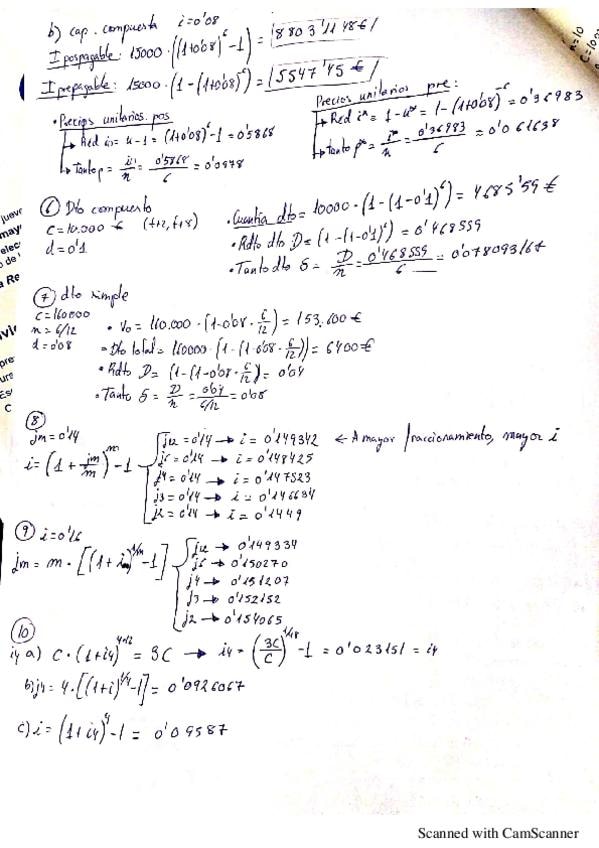 b) cap. compuesta i=0'08
I pospagable: 15000·((1+0'08)^6-1) = 8803'1148€
I prepagable: 15000·(1-(1+0'08)^-6) = 5547'45€
• Precios unitarios pos
Red i^n = u-1 = (1+0'08)^6-1 = 0'5868
Tanto p = i^n/n = 0'5868/6 = 0'0978
Precios unitarios pre:
Red i*n = 1-u^-n = 1-(1+0'08)^-6 = 0'36983
Tanto p* = i*n/n = 0'36983/6 = 0'061638
n=10
6 Dto compuesto
C=10.000€ (t+2, t+8)
d=0'1
• Cuantía dto = 10000·(1-(1-0'1)^6) = 4685'59€
• Rdto dto D = (1-(1-0'1)^6) = 0'468559
• Tanto dto δ = D/n = 0'468559/6 = 0'078093167
7 dto simple
C=160000
n=6/12
d=0'08
• V0 = 160.000·(1-0'08·6/12) = 153.600€
• Dto total = 160000·(1-(1-0'08·6/12)) = 6400€
• Rdto D = (1-(1-0'08·6/12) = 0'04
• Tanto δ = D/n = 0'04/6/12 = 0'08
8
jm=0'14
i = (1+jm/m)^m -1
j12=0'14 → i=0'149342 ← A mayor fraccionamiento, mayor i
j6=0'14 → i=0'148425
j4=0'14 → i=0'147523
j3=0'14 → i=0'146634
j2=0'14 → i=0'1449
9 i=0'16
jm = m·[(1+i)^1/m -1]
j12 → 0'149334
j6 → 0'150270
j4 → 0'151207
j3 → 0'152152
j2 → 0'154065
10
i4 a) C·(1+i4)^4·12 = 3C → i4 = (3C/C)^1/48 -1 = 0'023151 = i4
b) j4 = 4·[(1+i)^1/4 -1] = 0'0926067
c) i = (1+i4)^4 -1 = 0'09587
Scanned with CamScanner